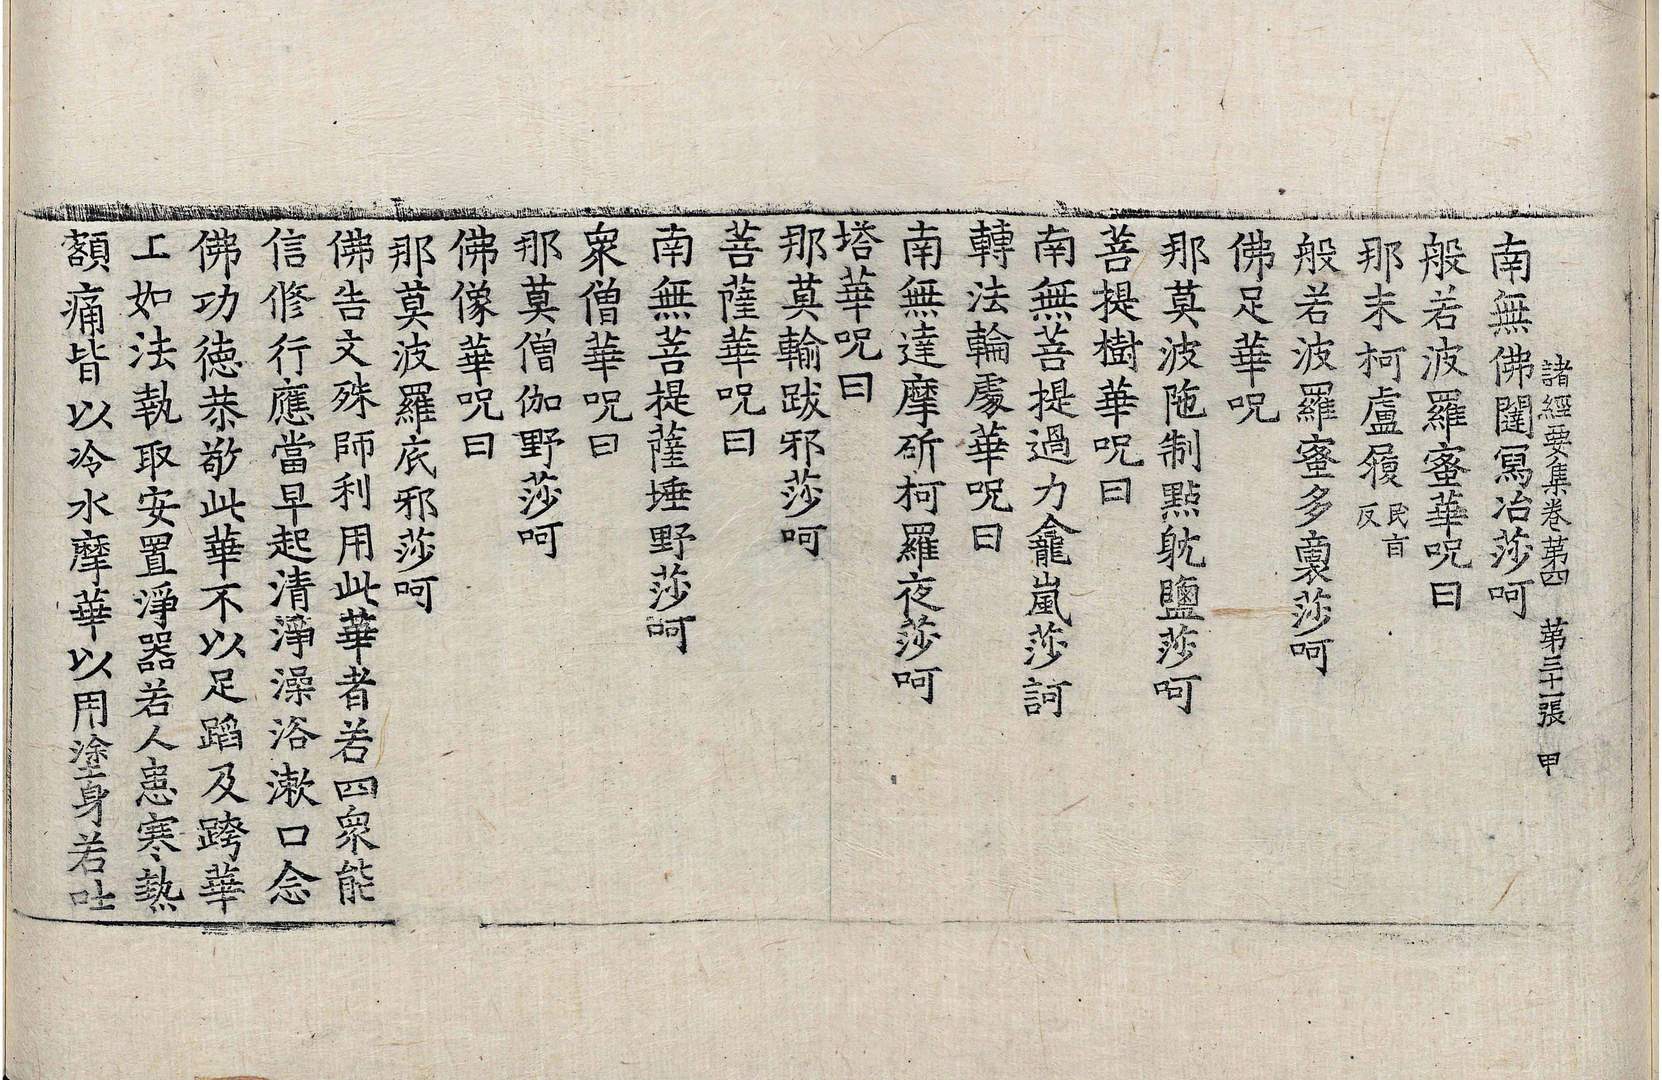 諸經要集卷第四 第三十一張 甲
南無佛闥窵冶莎呵
般若波羅蜜華呪曰
那末柯盧履民盲反
般若波羅蜜多裏莎呵
佛足華呪
那莫波陁制點躭鹽莎呵
菩提樹華呪曰
南無菩提過力龕嵐莎訶
轉法輪處華呪曰
南無達摩斫柯羅夜莎呵
塔華呪曰
那莫輸跋邪莎呵
菩薩華呪曰
南無菩提薩埵野莎呵
衆僧華呪曰
那莫僧伽野莎呵
佛像華呪曰
那莫波羅底邪莎呵
佛告文殊師利用此華者若四衆能
信修行應當早起清淨澡浴漱口念
佛功德恭敬此華不以足蹈及跨華
上如法執取安置淨器若人患寒熱
額痛皆以冷水摩華以用塗身若吐